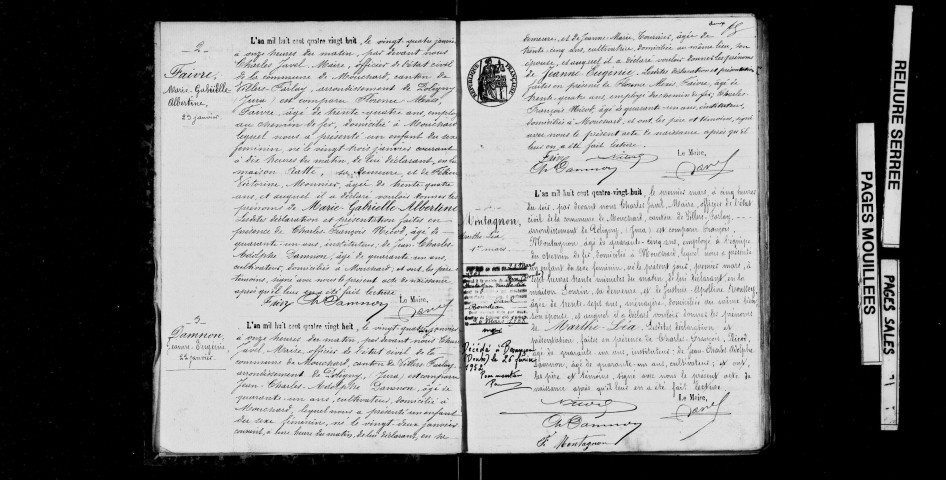 2
Faivre,
Marie-Gabrielle
Albertine,
23 janvier.
L'an mil huit cent quatre vingt huit, le vingt-quatre janvier
à onze heures du matin, par devant nous
Charles Javel, Maire, officier de l'état civil
de la commune de Mouchard, canton de
Villers-Farlay, arrondissement de Poligny
(Jura) est comparu Florence
Faivre, âgé de trente-quatre ans, employé
au chemin de fer, domicilié à Mouchard,
lequel nous a présenté un enfant du sexe
féminin, né le vingt-trois janvier courant
à dix heures du matin, de lui déclarant, en la
maison sa demeure, et de
Victorine, Mounier, âgée de trente quatre
ans, et auquel il a déclaré vouloir donner les
prénoms de Marie-Gabrielle Albertine
Lesdites déclaration et présentation faites en
présence de Charles-François Nicod, âgé de
quarante-un ans, instituteur, de Jean-Charles
Adolphe Damnon, âgé de quarante un ans,
cultivateur, domiciliés à Mouchard, et ont, les père et
témoins, signé avec nous le présent acte de naissance
après qu'il leur en a été fait lecture.
Le Maire,
Ch Damnon
Javel
3
Damnon,
Jeanne-Eugénie
22 janvier.
L'an mil huit cent quatre vingt huit, le vingt-quatre janvier
à onze heures du matin, par devant nous Charles
Javel, Maire, officier de l'état civil de la
commune de Mouchard, canton de Villers Farlay,
arrondissement de Poligny, (Jura) est comparu
Jean-Charles-Adolphe Damnon, âgé de
quarante-un ans, cultivateur, domicilié à
Mouchard, lequel nous a présenté un enfant
du sexe féminin, né le vingt-deux janvier
courant, à une heure du matin, de lui déclarant, en sa
demeure, et de Jeanne-Marie, Tournier, âgée de
trente cinq ans, cultivateur, domiciliée au même lieu, son
épouse, et auquel il a déclaré vouloir donner les prénoms
de Jeanne-Eugénie. Lesdites déclaration et présentation
faites en présence de Florence Faivre, âgé de
trente-quatre ans, employé au chemin de fer, Charles-
François Nicod, âgé de quarante-un ans, instituteur,
domiciliés à Mouchard, et ont, les père et témoins, signé
avec nous le présent acte de naissance après qu'il
leur en a été fait lecture.
RÉPUBLIQUE FRANÇAISE
Le Maire,
Nicod
Ch Damnon
Javel
Montagnon,
Marthe Léa
1er mars
L'an mil huit cent quatre-vingt-huit, le premier mars, à cinq heures
du soir, par devant nous Charles Javel, Maire, officier de l'état
civil de la commune de Mouchard, canton de Villers-Farlay,
arrondissement de Poligny, (Jura) est comparu François
Montagnon, âgé de quarante-cinq ans, employé à l'équipe
au chemin de fer, domicilié à Mouchard, lequel nous a présenté
un enfant du sexe féminin, né le présent jour, premier mars, à
sept heures trente minutes du matin, de lui déclarant, en la
maison sa demeure, et de Justine
âgée de trente-sept ans, ménagère, domiciliée au même lieu,
son épouse, et auquel il a déclaré vouloir donner les prénoms
de Marthe-Léa. Lesdites déclaration et
présentation, faites en présence de Charles François, Nicod,
âgé de quarante un ans, instituteur, de Jean-Charles Adolphe
Damnon, âgé de quarante un ans, cultivateur, et ont,
les père et témoins, signé avec nous le présent acte de
naissance après qu'il leur en a été fait lecture.
Décédée à Besançon
(Doubs) le 25
1952
Pour mention
Le Maire,
Nicod
Javel
Ch Damnon
F. Montagnon
RELIURE SERREE
PAGES MOUILLEES
PAGES SALES